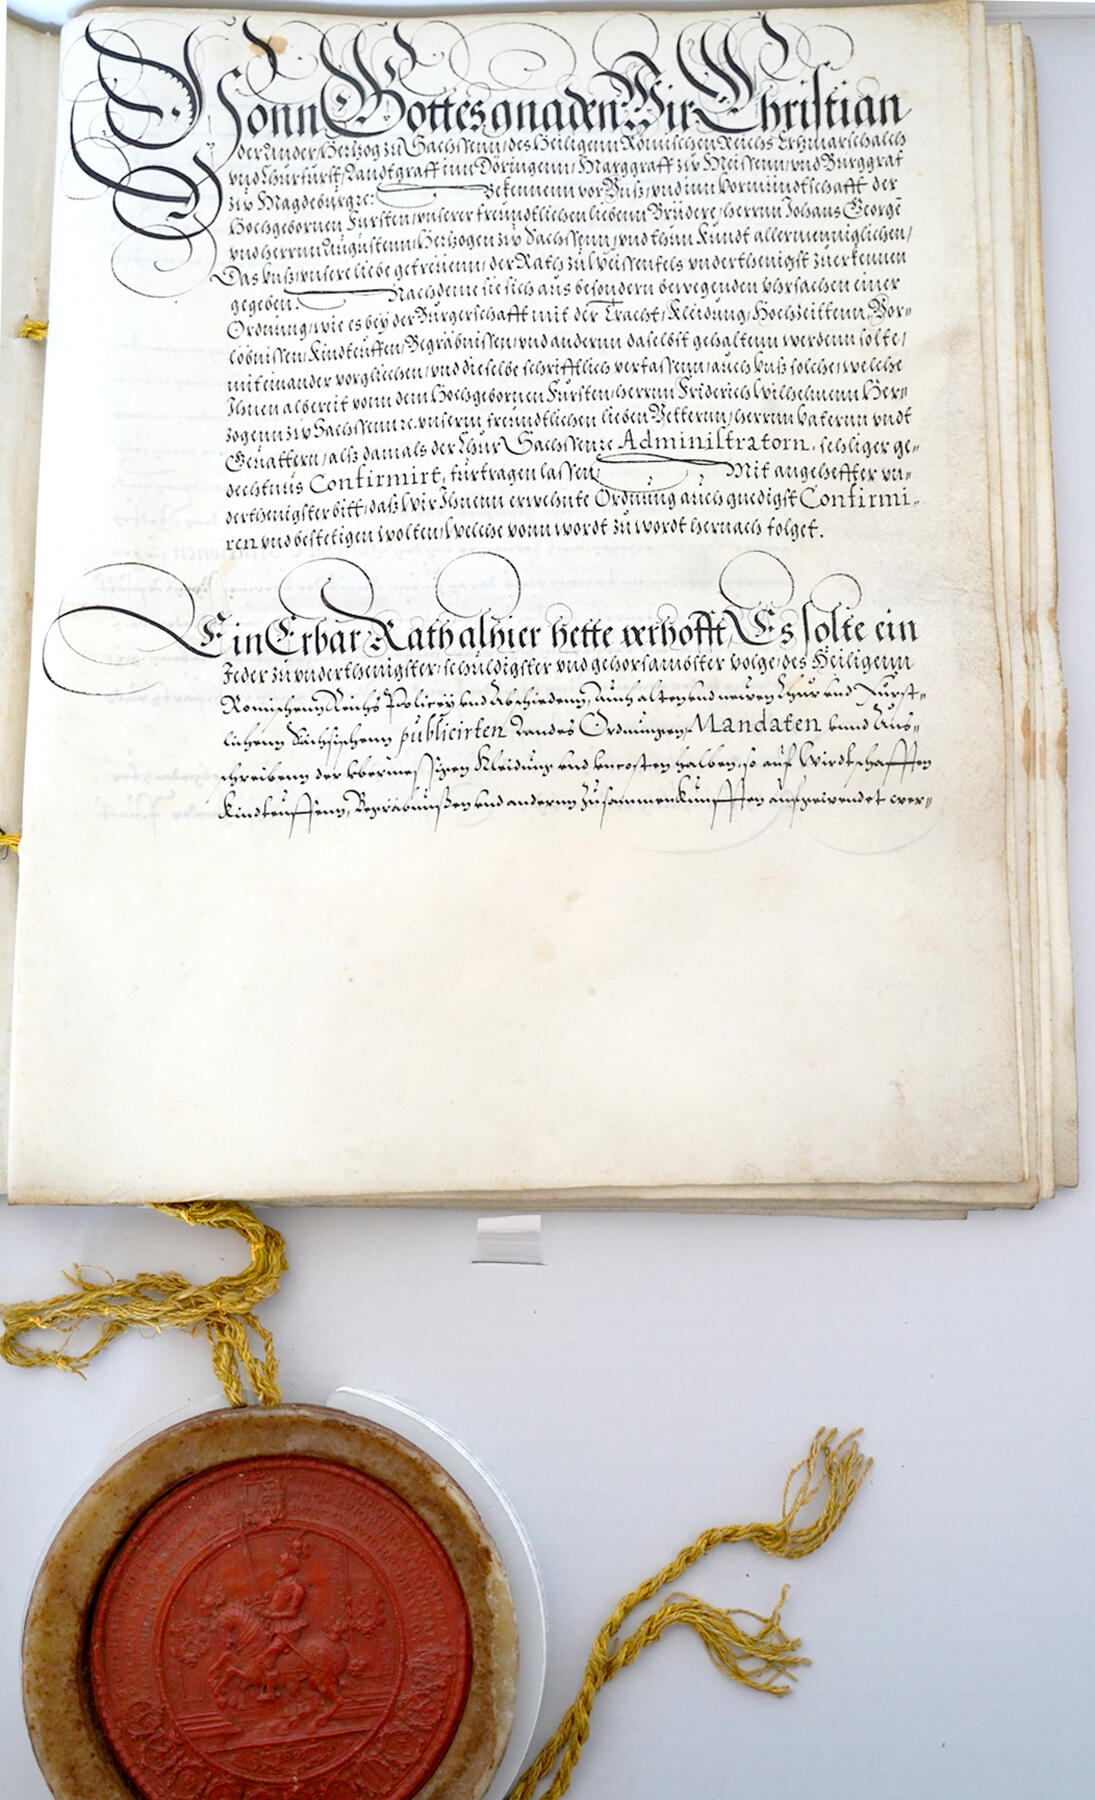 Vonn Gottes gnaden Wir Christian
der Ander, Hertzog zu Sachssenn, des Heiligenn Römischen Reichs Ertzmarschalch
vnd Churfürst, Landtgraff inn Döringenn, Marggraff zu Meissenn, vnd Burggraf
zu Magdeburg rc: Bekennenn vor Vnß, vnd inn Vormundtschafft der
Hochgebornen Fürsten, vnserer freundtlichen liebenn Brüdere, herrnn Johans Georgē
vnd herrnn Augustenn, Hertzogen zu Sachssenn, vnd thun Kundt allermenniglichen,
Das vnß, vnsere liebe getreuenn, der Rath zu Weissenfels vnderthenigst zuerkennen
gegeben. Nachdeme sie sich aus besondern bewegenden Vhrsachen einer
Ordnung, wie es bey der Bürgerschafft mit der Tracht, Kleidung, Hochzeittenn, Vor-
löbnissen, Kindteuffen, Begräbnissen, vnd anderrn daselbst gehaltenn werdenn solte,
miteinander vorglichen, vnd dieselbe schrifftlich verfassenn, auch vnß solche, welche
Ihnen albereit vonn dem Hochgebornen Fürsten, herrnn Friderich Wilhelmenn Her-
zogenn zu Sachssenn rc. vnserm freundtlichen lieben Vetternn, herrnn Vaternn vndt
Geuattern, alß damals der Chur Sachssen rc Administratorn, sehliger ge-
dechtnüs Confirmirt, fürtragen lassen, Mit angeheffter vn-
derthenigster bitt, daß Wir Ihnenn erwehnte Ordnung auch gnedigst Confirmi-
ren vnd bestetigen wolten, Welche vonn wordt zu wordt hernach folget.
Ein Erbar Rath alhier hette verhofft, Es solte ein
Jeder zu vnderthenigster, schuldigster vnd gehorsambster volge, des Heiligenn
Romischenn Reichs Policey vnd Abschiedenn, Auch alten vnd newen Chur vnd Fürst-
lichenn Sächsischenn publicirten Landes Ordnungen, Mandaten vnnd Aus-
schreibenn der vbermessigen Kleidung vnd vncosten halben, so auf Wirdtschafften
Kindteuffenn, Begräbnußen vnd andernn Zusammenkunfften aufgewendet wer-